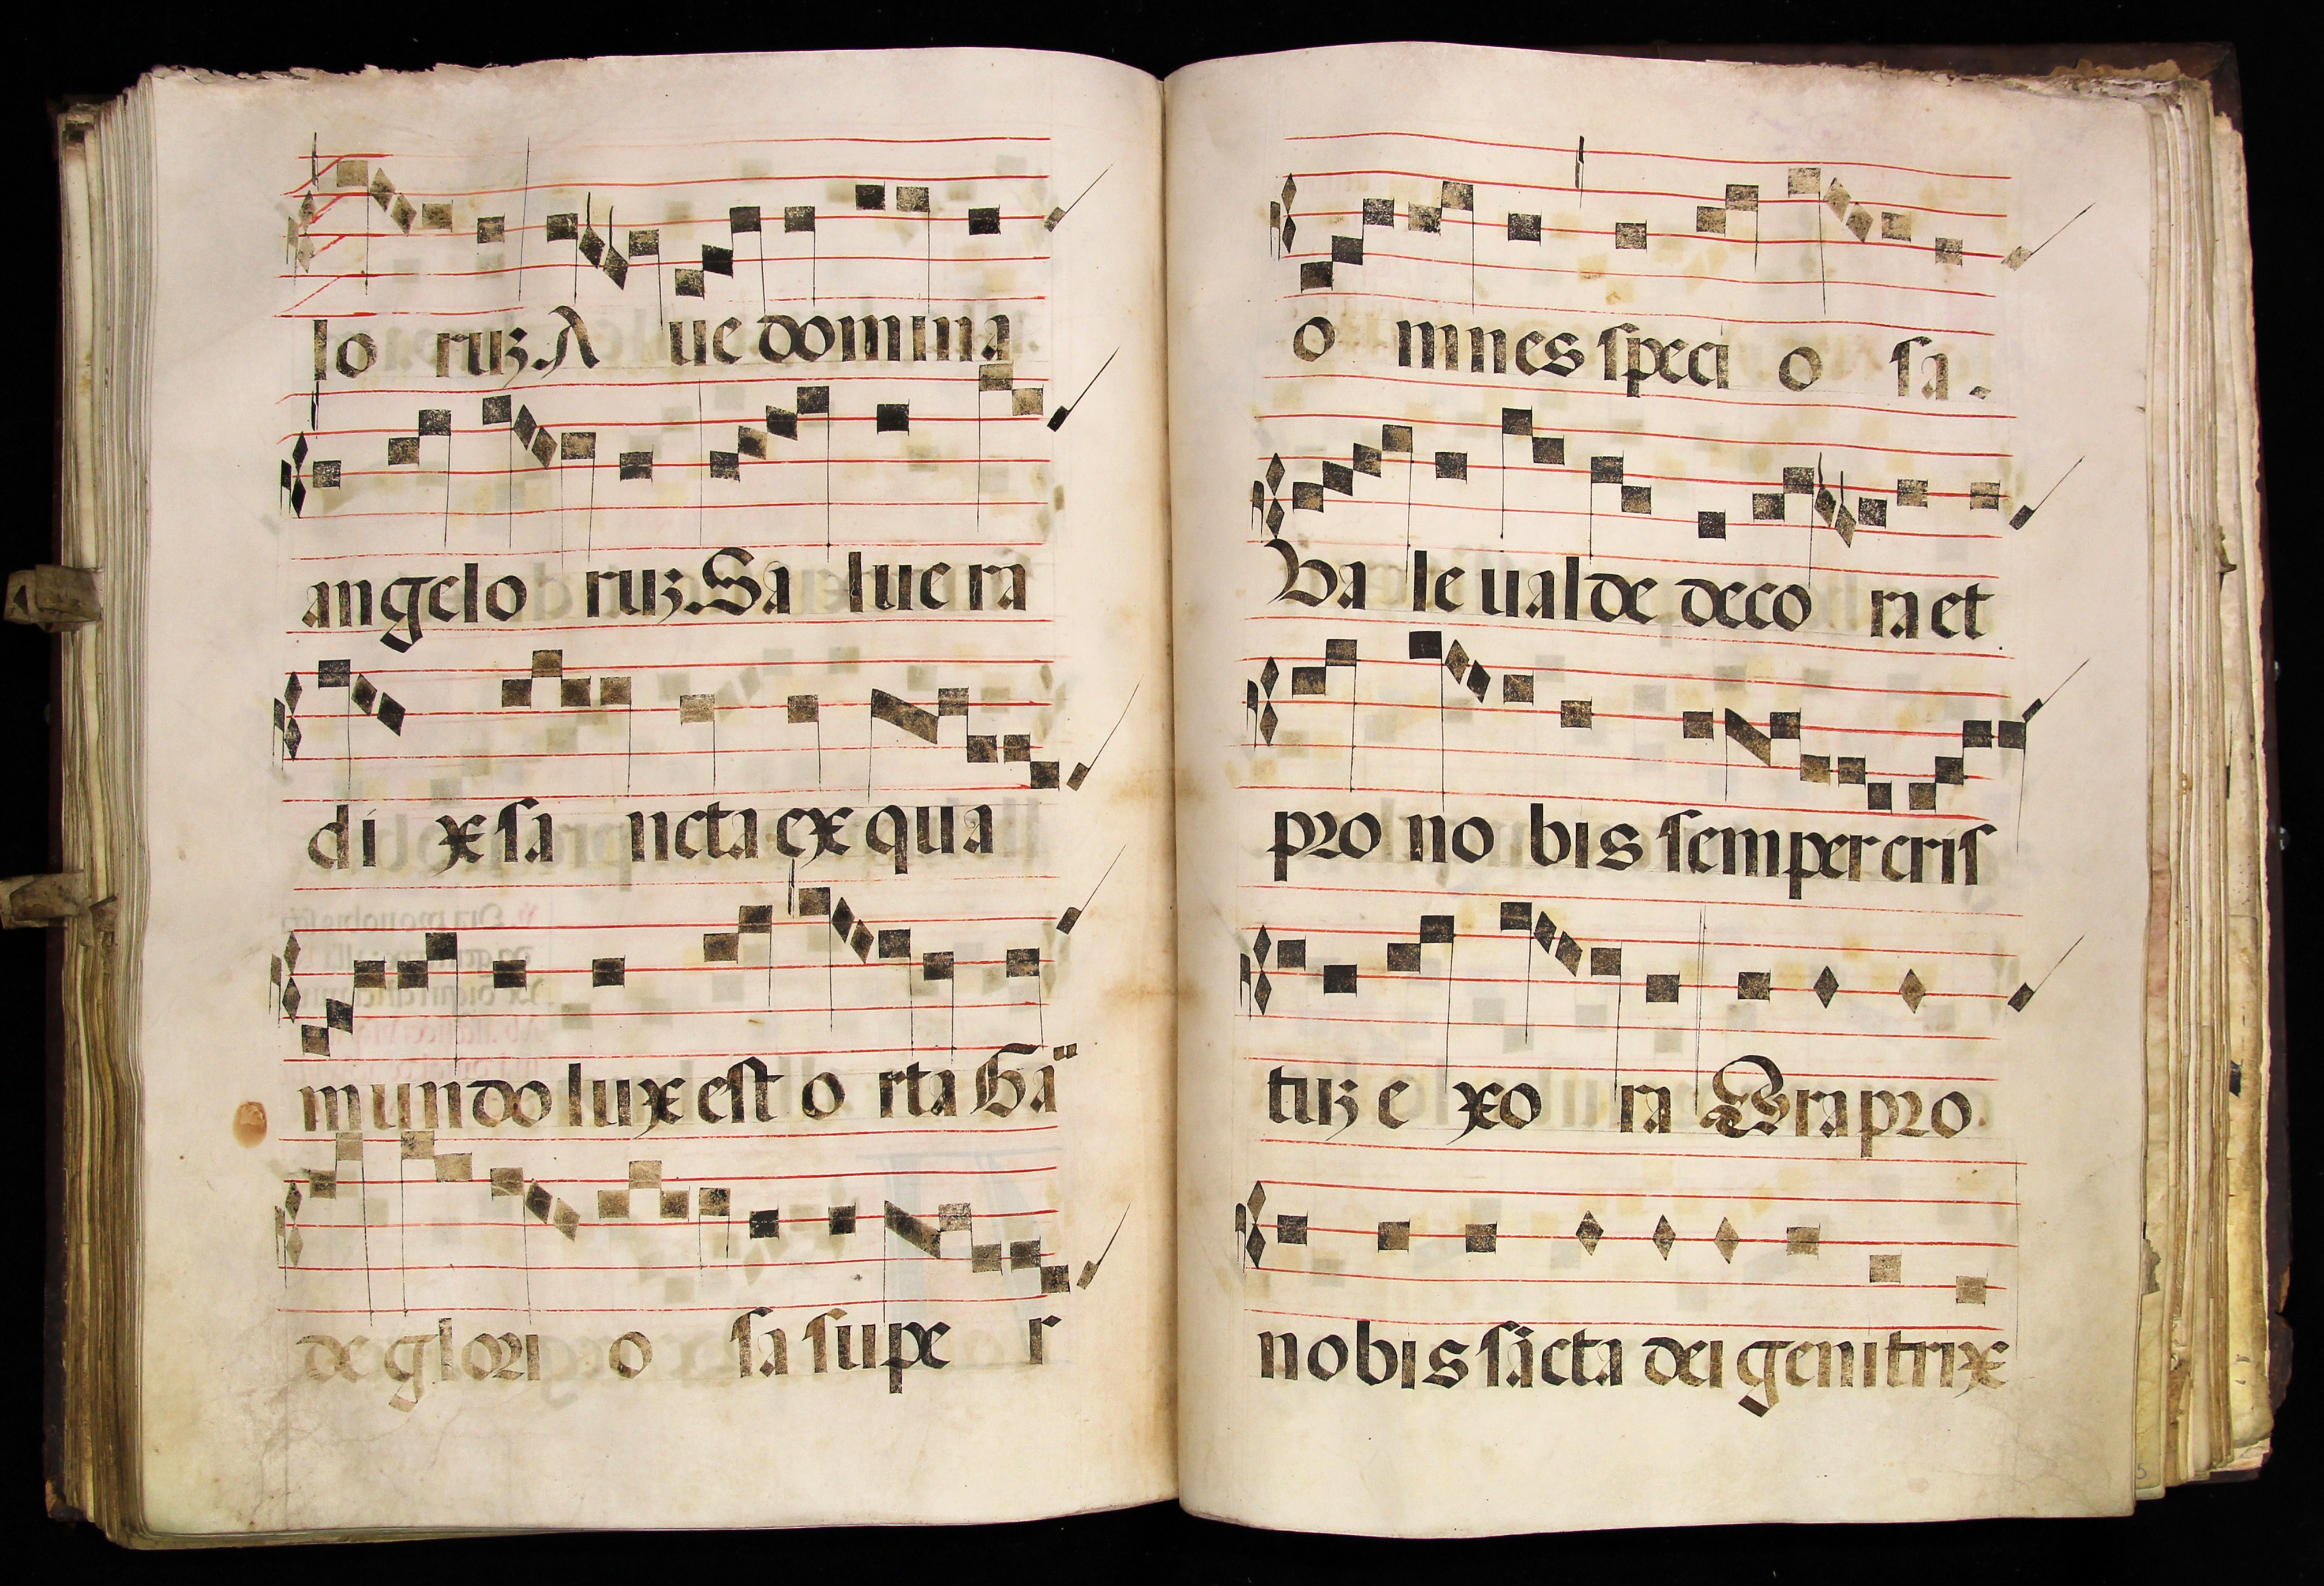 lo ruꝫ. A ue domina
angelo ruꝫ. Sa lue ra
di x sa ncta ex qua
mundo lux est o rta Gā
de glori o sa supe r
o mnes speci o sa.
Va le ualde deco ra et
pro no bis semper eris
tuꝫ e xo ra Ora pro
nobis sācta dei genitrix